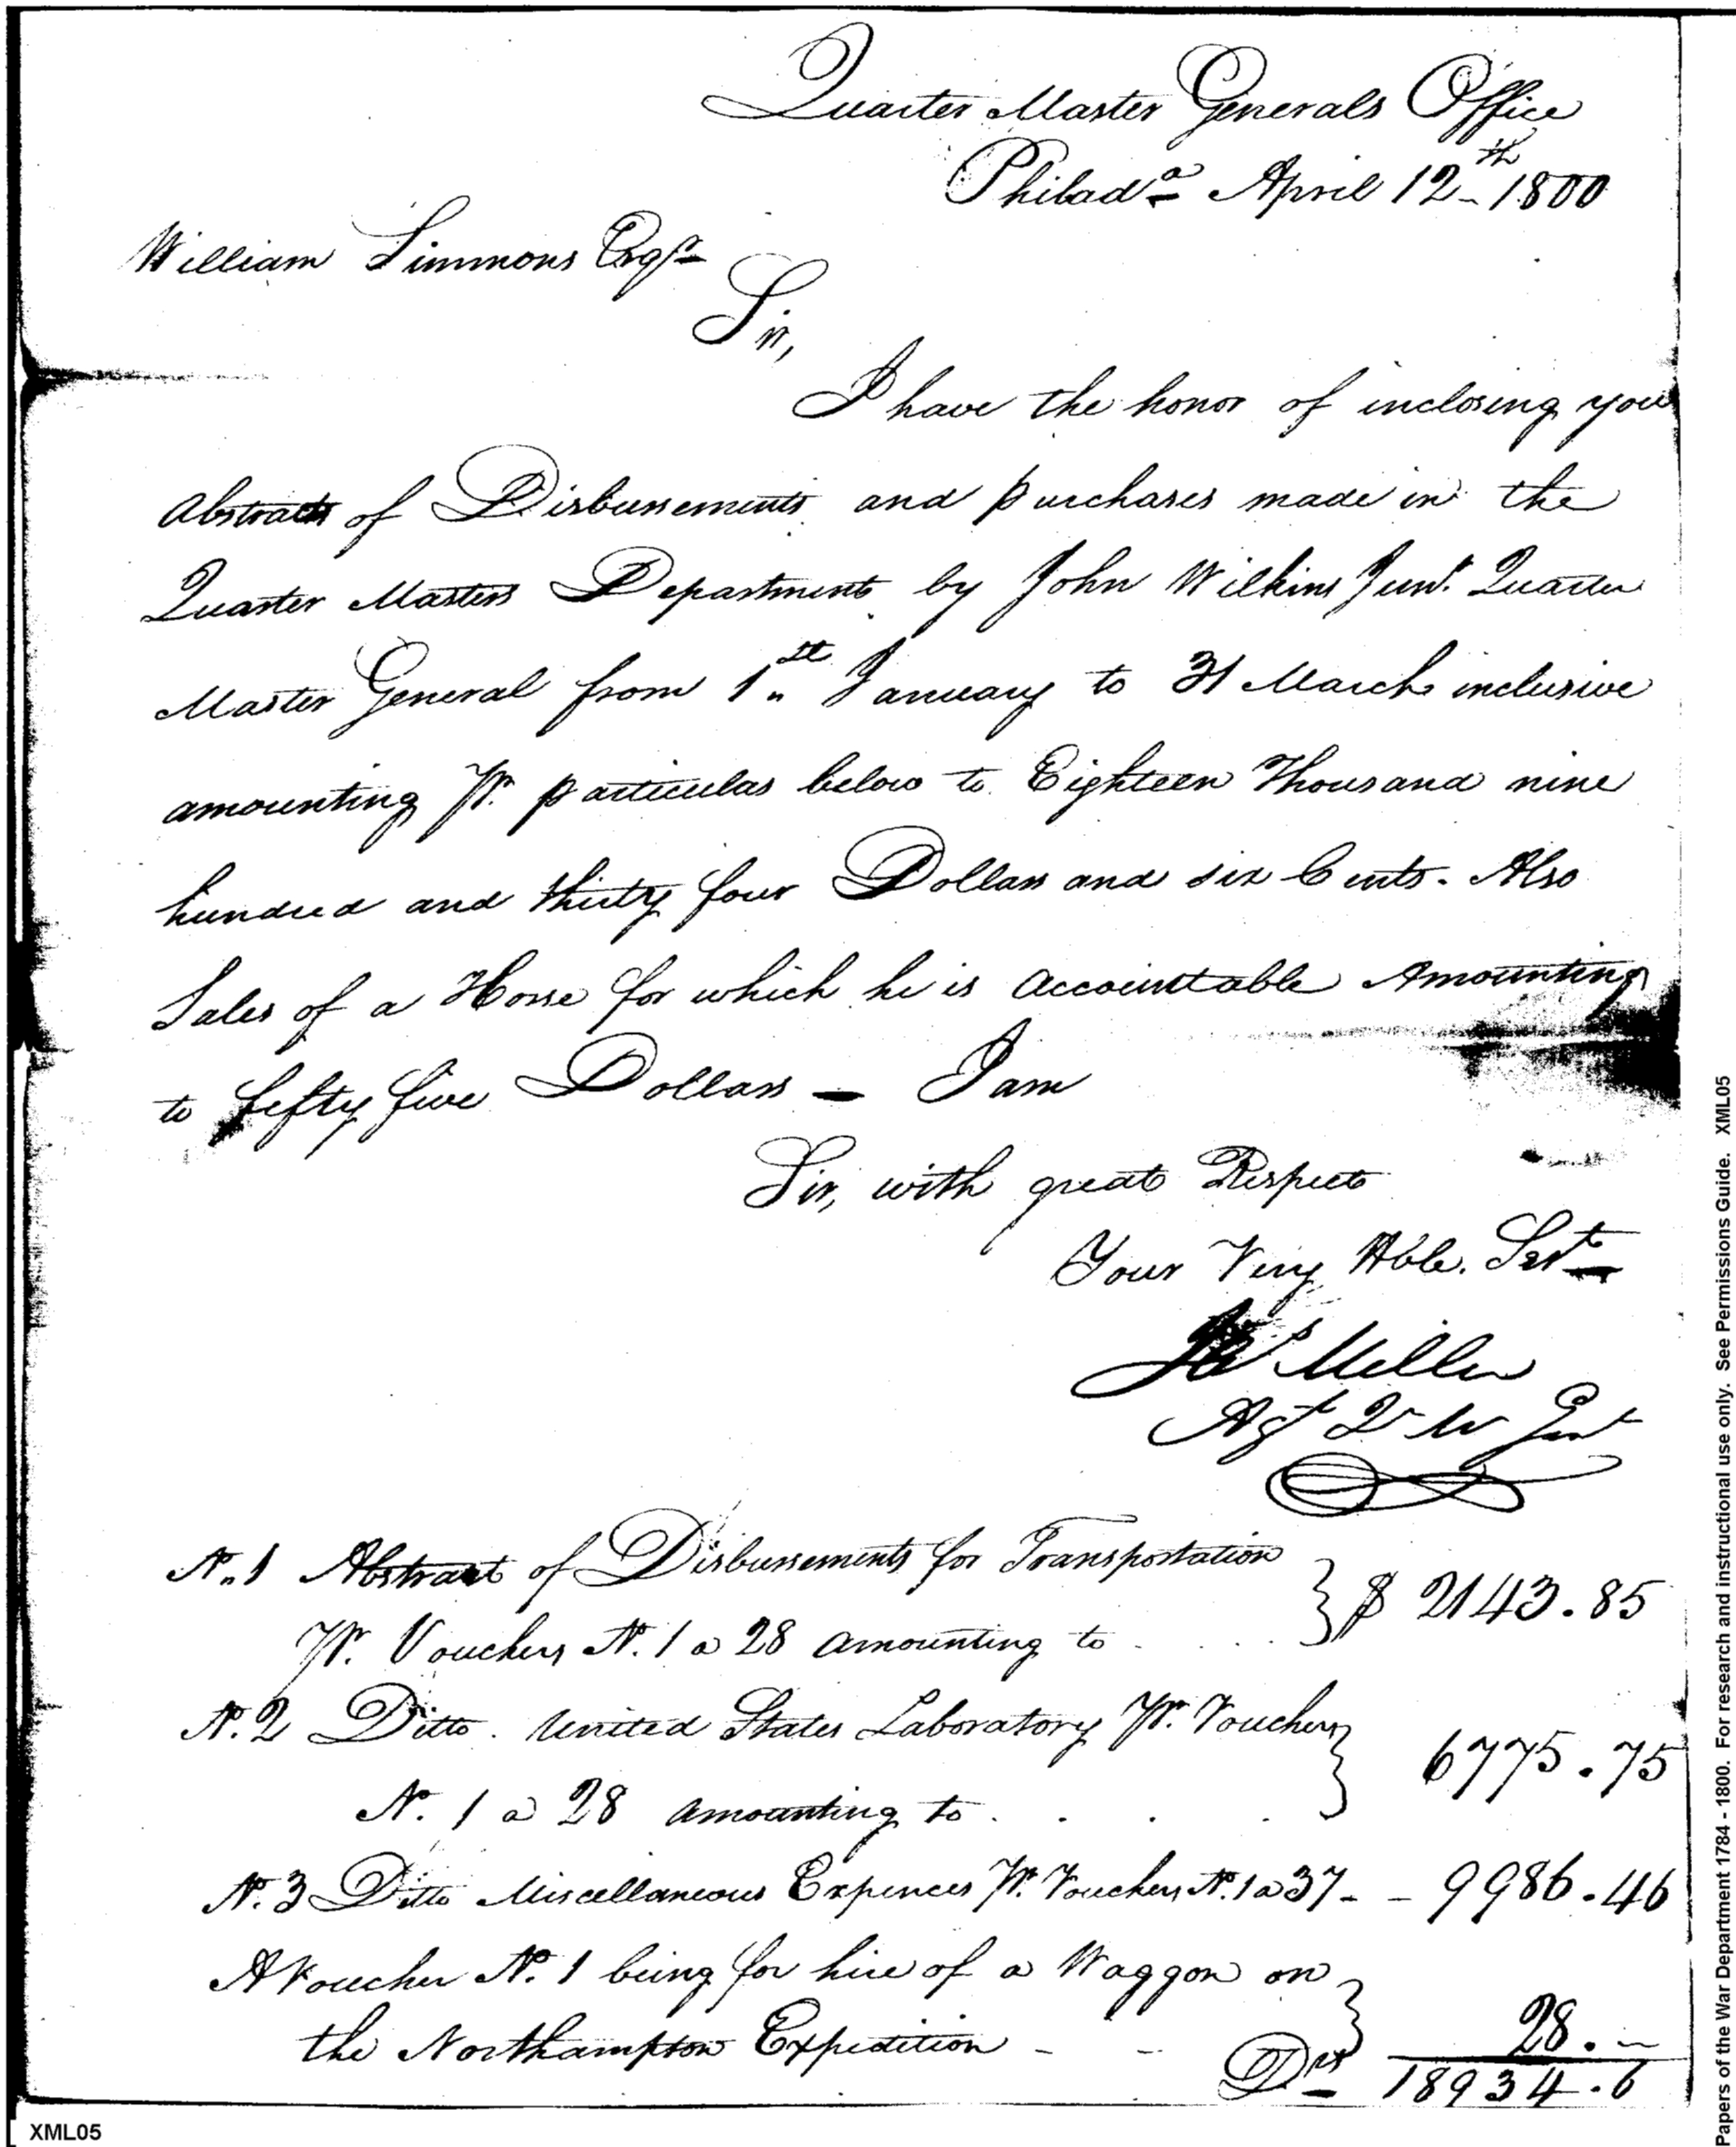 Quarter Master Generals Office
Philad.a April 12th 1800
William Simmons Esqr
Sir,
I have the honor of inclosing you
Abstracts of Disbursements and purchases made in the
Quarter Masters Department by John Wilkins Junr. Quarter
Master General from 1st January to 31 March inclusive
amounting Pr. particulas below to Eighteen Thousand nine
hundred and thirty four Dollars and six Cents. Also
Sales of a Horse for which he is Accountable Amounting
to fifty five Dollars — I am
Sir, with great Respect
Your Very Hble. Sert
Miller
Agt Q M Genl
No. 1 Abstract of Disbursements for Transportation
Pr. Vouchers No. 1 a 28 amounting to . . . . } $ 2143.85
No. 2 Ditto. United States Laboratory Pr. Vouchers
No. 1 a 28 amounting to . . . . } 6775.75
No. 3 Ditto Miscellaneous Expences Pr. Vouchers No. 1 a 37 - - 9986.46
A Voucher No. 1 being for hire of a Waggon on
the Northampton Expedition - - } 28.–
Drs 18934.6
XML05
Papers of the War Department 1784 - 1800. For research and instructional use only. See Permissions Guide. XML05